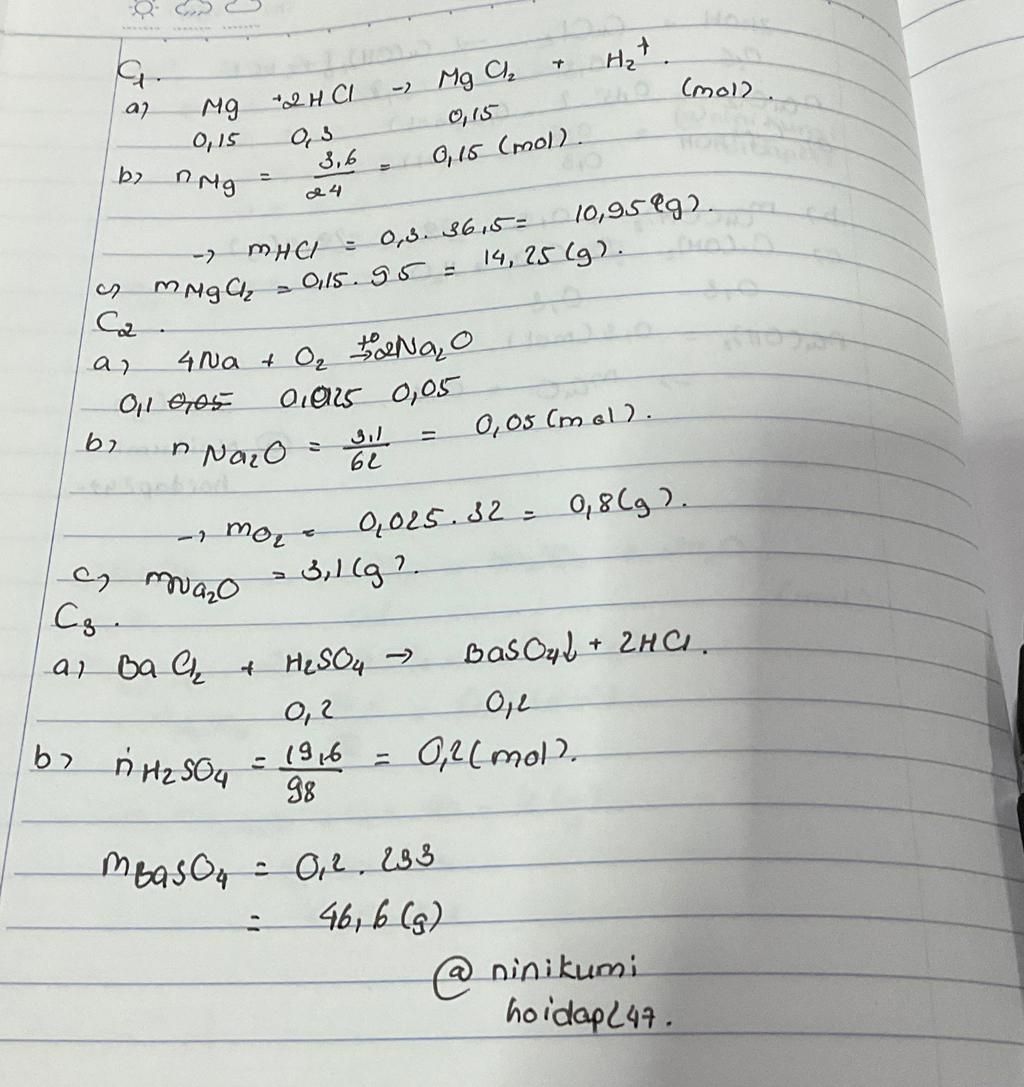 C1.
a) Mg +2HCl → MgCl2 + H2↑.
0,15 0,3 0,15 (mol).
b) nMg = 3,6/24 = 0,15 (mol).
→ mHCl = 0,3. 36,5= 10,95(g).
c) mMgCl2 = 0,15. 95 = 14,25 (g).
C2.
a) 4Na + O2 t°→ 2Na2O
0,1 0,05 0,025 0,05
b) n Na2O = 3,1/62 = 0,05 (mol).
→ mO2 = 0,025. 32 = 0,8 (g).
c) mNa2O = 3,1 (g).
C3.
a) BaCl2 + H2SO4 → BaSO4↓ + 2HCl.
0,2 0,2
b) nH2SO4 = 19,6/98 = 0,2 (mol).
mBaSO4 = 0,2. 233
= 46,6 (g)
@ ninikumi
hoidap247.